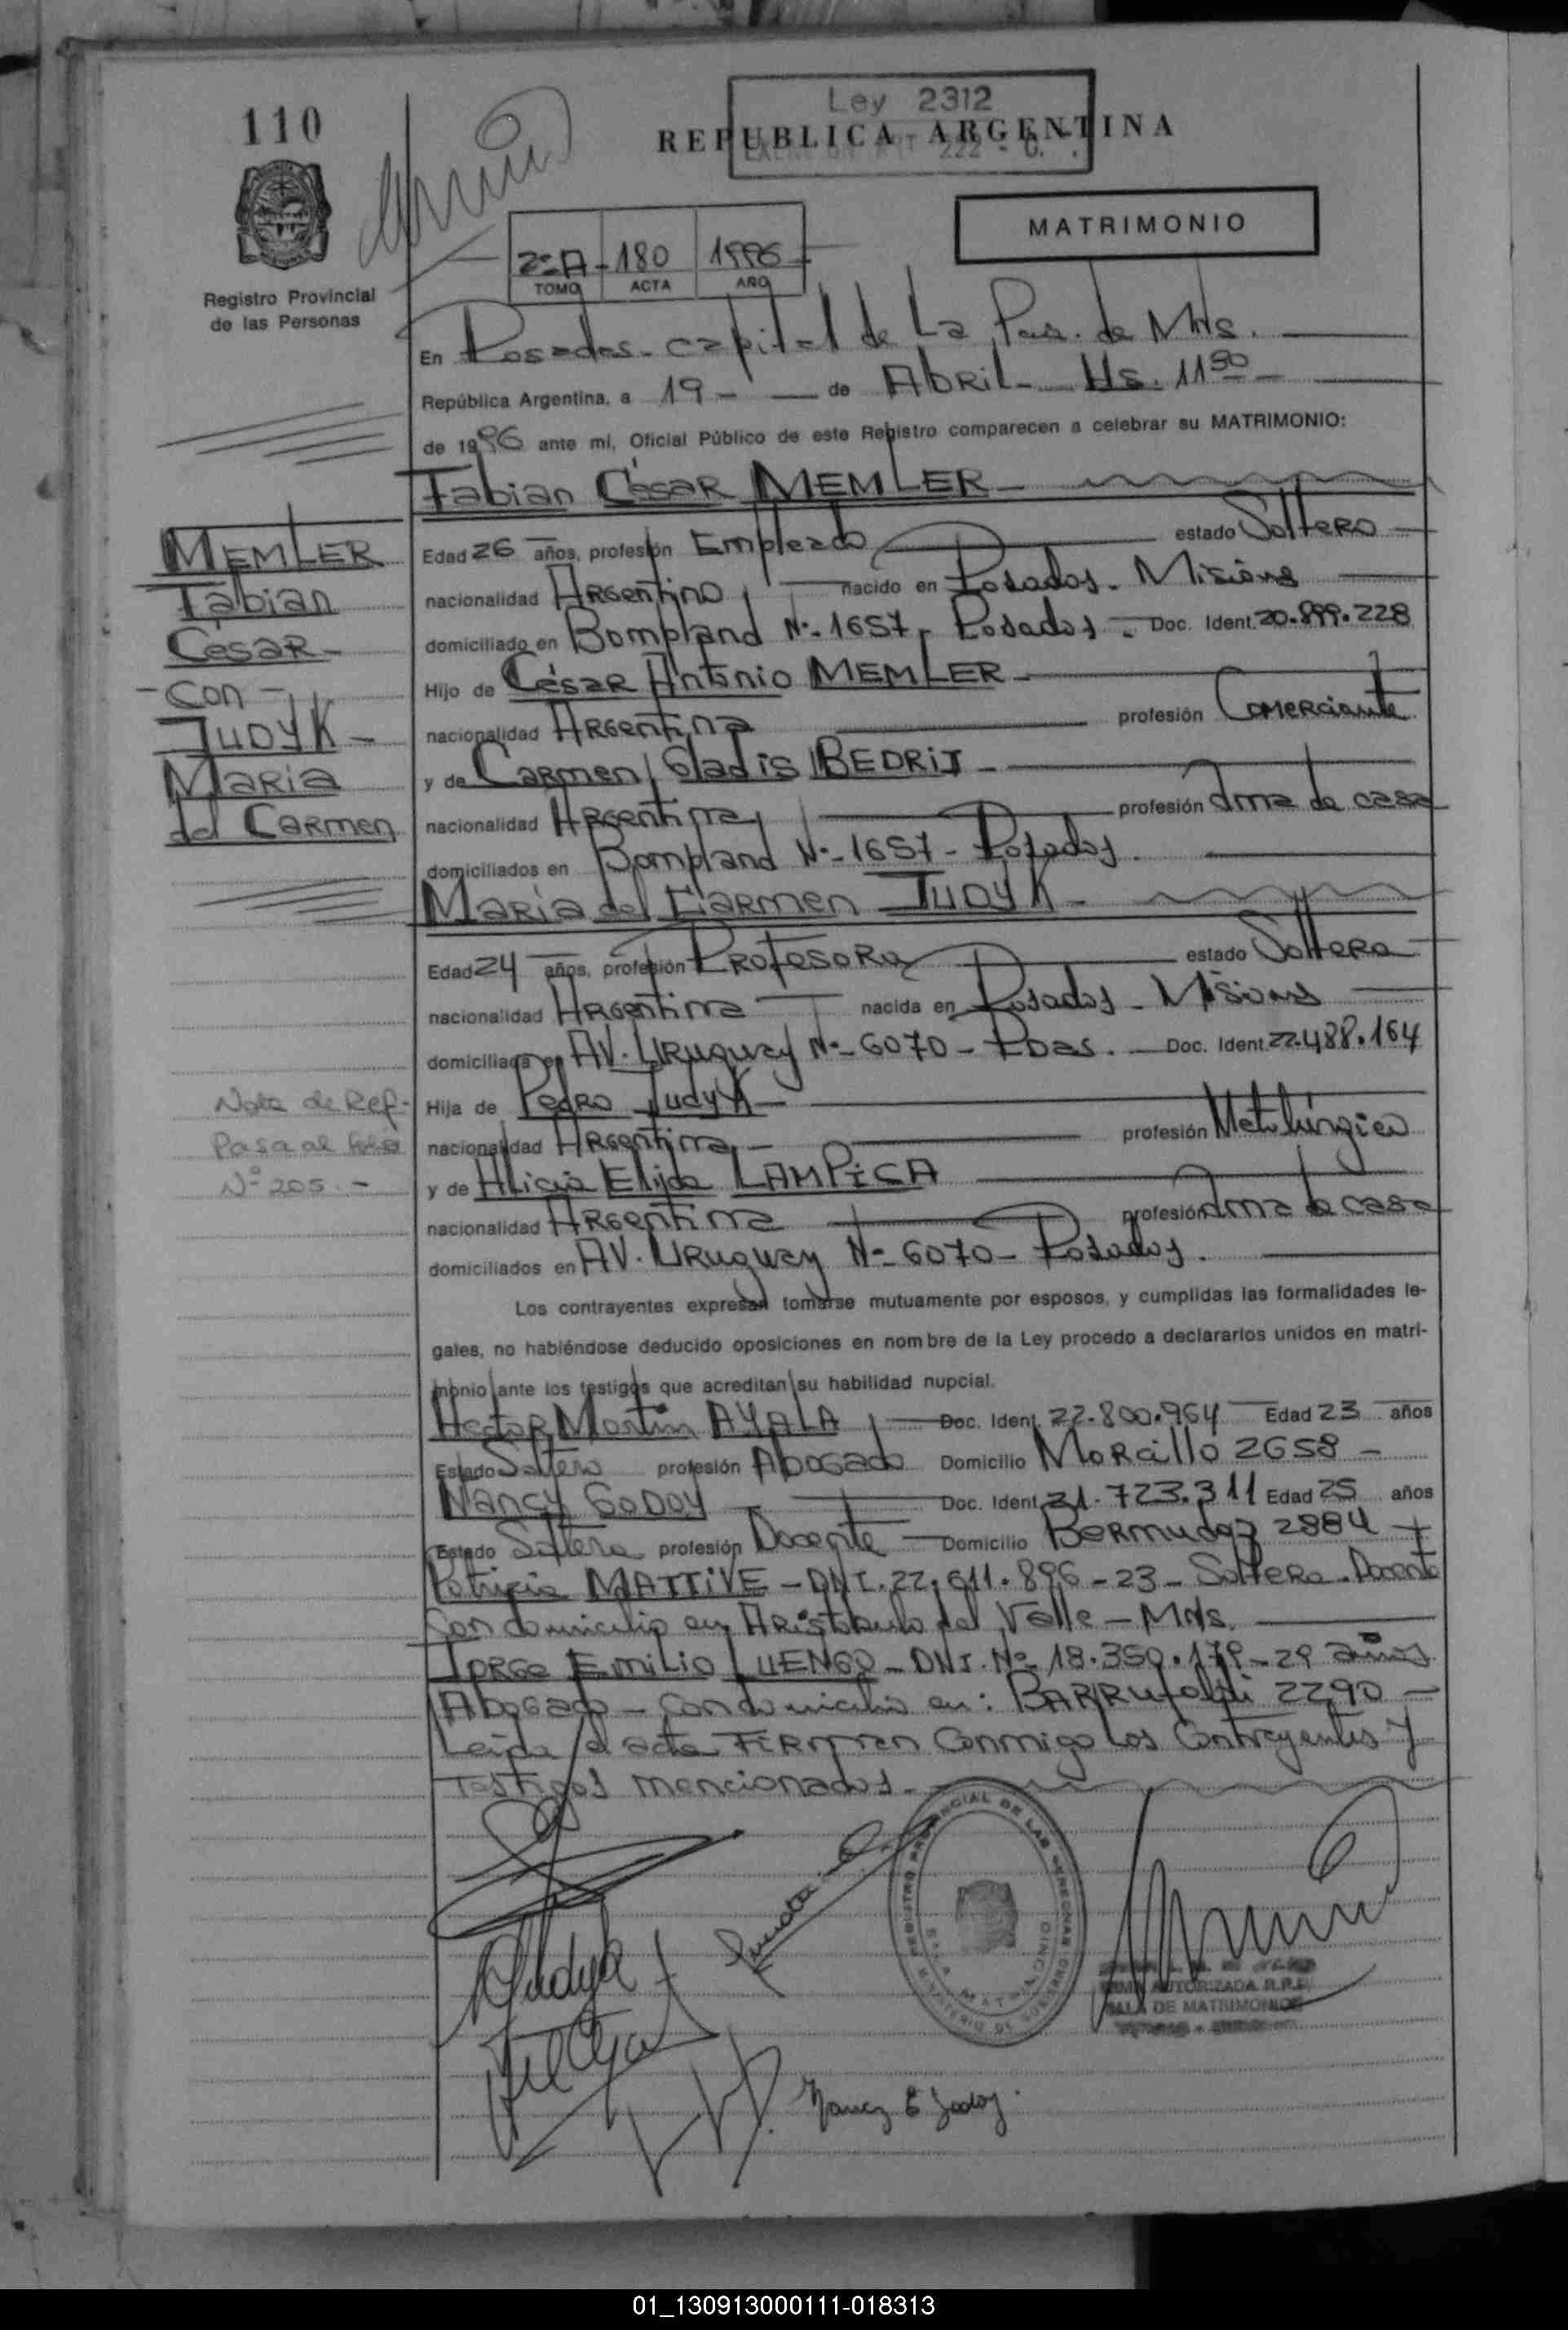 110
Ley 2312
REPUBLICA ARGENTINA
MATRIMONIO
2º A - 180 1996
TOMO ACTA AÑO
Registro Provincial
de las Personas
En Posadas - capital de La de Mns.
República Argentina, a 19 - de Abril - Hs. 11 30
de 1996 ante mí, Oficial Público de este Registro comparecen a celebrar su MATRIMONIO:
Fabian César MEMLER
MEMLER
Fabian
César -
- con -
JUDYK -
Maria
del Carmen
Edad 26 años, profesión Empleado estado Soltero
nacionalidad Argentino nacido en Posadas - Misiones
domiciliado en Bompland Nº - 1657 - Posadas - Doc. Ident. 20.899.228
Hijo de César Antonio MEMLER
nacionalidad Argentina profesión Comerciante
y de Carmen Gladis BEDRIJ -
nacionalidad Argentina profesión Ama de casa
domiciliados en Bompland Nº - 1657 - Posadas.
Maria del Carmen JUDYK -
Edad 24 años, profesión Profesora estado Soltera
nacionalidad Argentina nacida en Posadas - Misiones
domiciliada en AV. Uruguay Nº - 6070 - Pdas. - Doc. Ident. 22.488.164
Hija de Pedro Judyk -
nacionalidad Argentina - profesión Metalúrgico
y de Alicia Elida LAMPICA
nacionalidad Argentina profesión Ama de casa
domiciliados en AV. Uruguay Nº - 6070 - Posadas.
Nota de Ref -
Pasa al folio
Nº 205 . -
Los contrayentes expresan tomarse mutuamente por esposos, y cumplidas las formalidades le-
gales, no habiéndose deducido oposiciones en nombre de la Ley procedo a declararlos unidos en matri-
monio ante los testigos que acreditan su habilidad nupcial.
Hector Martin AYALA Doc. Ident. 22.800.964 Edad 23 años
Estado Soltero profesión Abogado Domicilio Morcillo 2658 -
Nancy GODOY Doc. Ident. 21.723.311 Edad 25 años
Estado Soltera profesión Docente Domicilio Bermudez 2884
Patricia MATTIVE - DNI. 22.611.896 - 23 - Soltera - Docente
Con domicilio en Aristobulo del Valle - Mns.
Jorge Emilio LUENGO - DNI. Nº - 18.350.179 - 29 años
Abogado - Con domicilio en: BARRUFALDI 2290 -
Leida el acta FIRMAN Conmigo Los Contrayentes y
Testigos mencionados -
REGISTRO PROVINCIAL DE LAS PERSONAS
MINISTERIO DE GOBIERNO
FIRMA AUTORIZADA R.P.P.
SALA DE MATRIMONIOS
Nancy E Godoy.
01_130913000111-018313